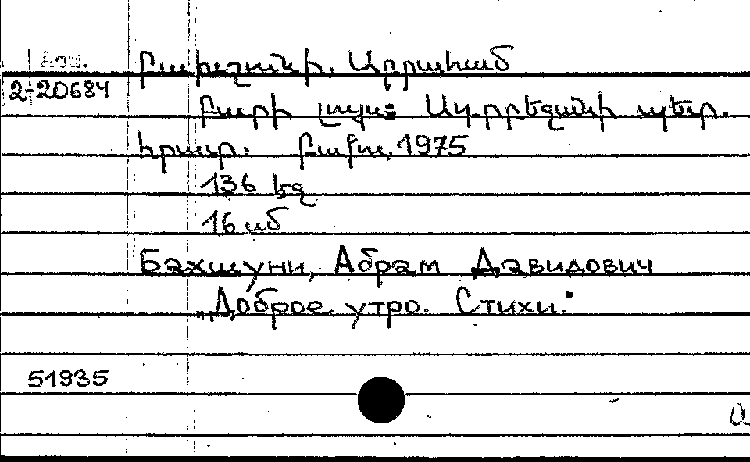 Բախշունի, Աբրահամ
2-20684
Բարի լույս: Ադրբեջանի պետ.
հրատ. Բաքու, 1975
136 էջ
16 սմ
Бахшуни, Абрам Давидович
„Доброе утро. Стихи."
51935